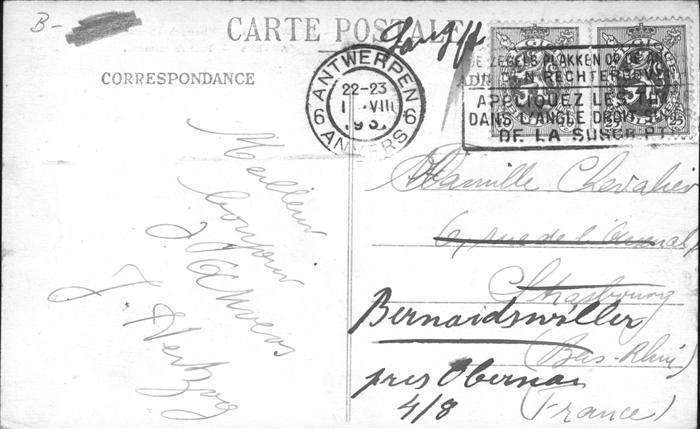 B-
CARTE POSTALE
CORRESPONDANCE
ANTWERPEN
22-23
VIII
193
6 6
ANVERS
ZEGELS PLAKKEN OP DE
EN RECHTERBOVEN
APPLIQUEZ LES
DANS L'ANGLE DROIT
DE LA SUSCRIPT
Meilleur
bonjour
d'Anvers
J. Hertzog
Famille Chevalier
6, rue de l'Arsenal
Strasbourg
Bernardswiller
(Bas-Rhin)
près Obernai
4/8
(France)